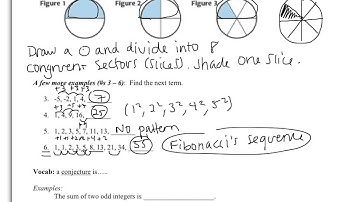 Figure 1 Figure 2 Figure 3
Draw a O and divide into 8
congruent sectors (slices). Shade one slice.
A few more examples (#s 3 – 6): Find the next term.
+3 +3 +3
3. -5, -2, 1, 4, 7
4. 1, 4, 9, 16, 25 (1², 2², 3², 4², 5²)
5. 1, 2, 3, 5, 7, 11, 13, No pattern
6. 1, 1, 2, 3, 5, 8, 13, 21, 34, 55 Fibonacci's sequence
Vocab: a conjecture is…..
Examples:
The sum of two odd integers is